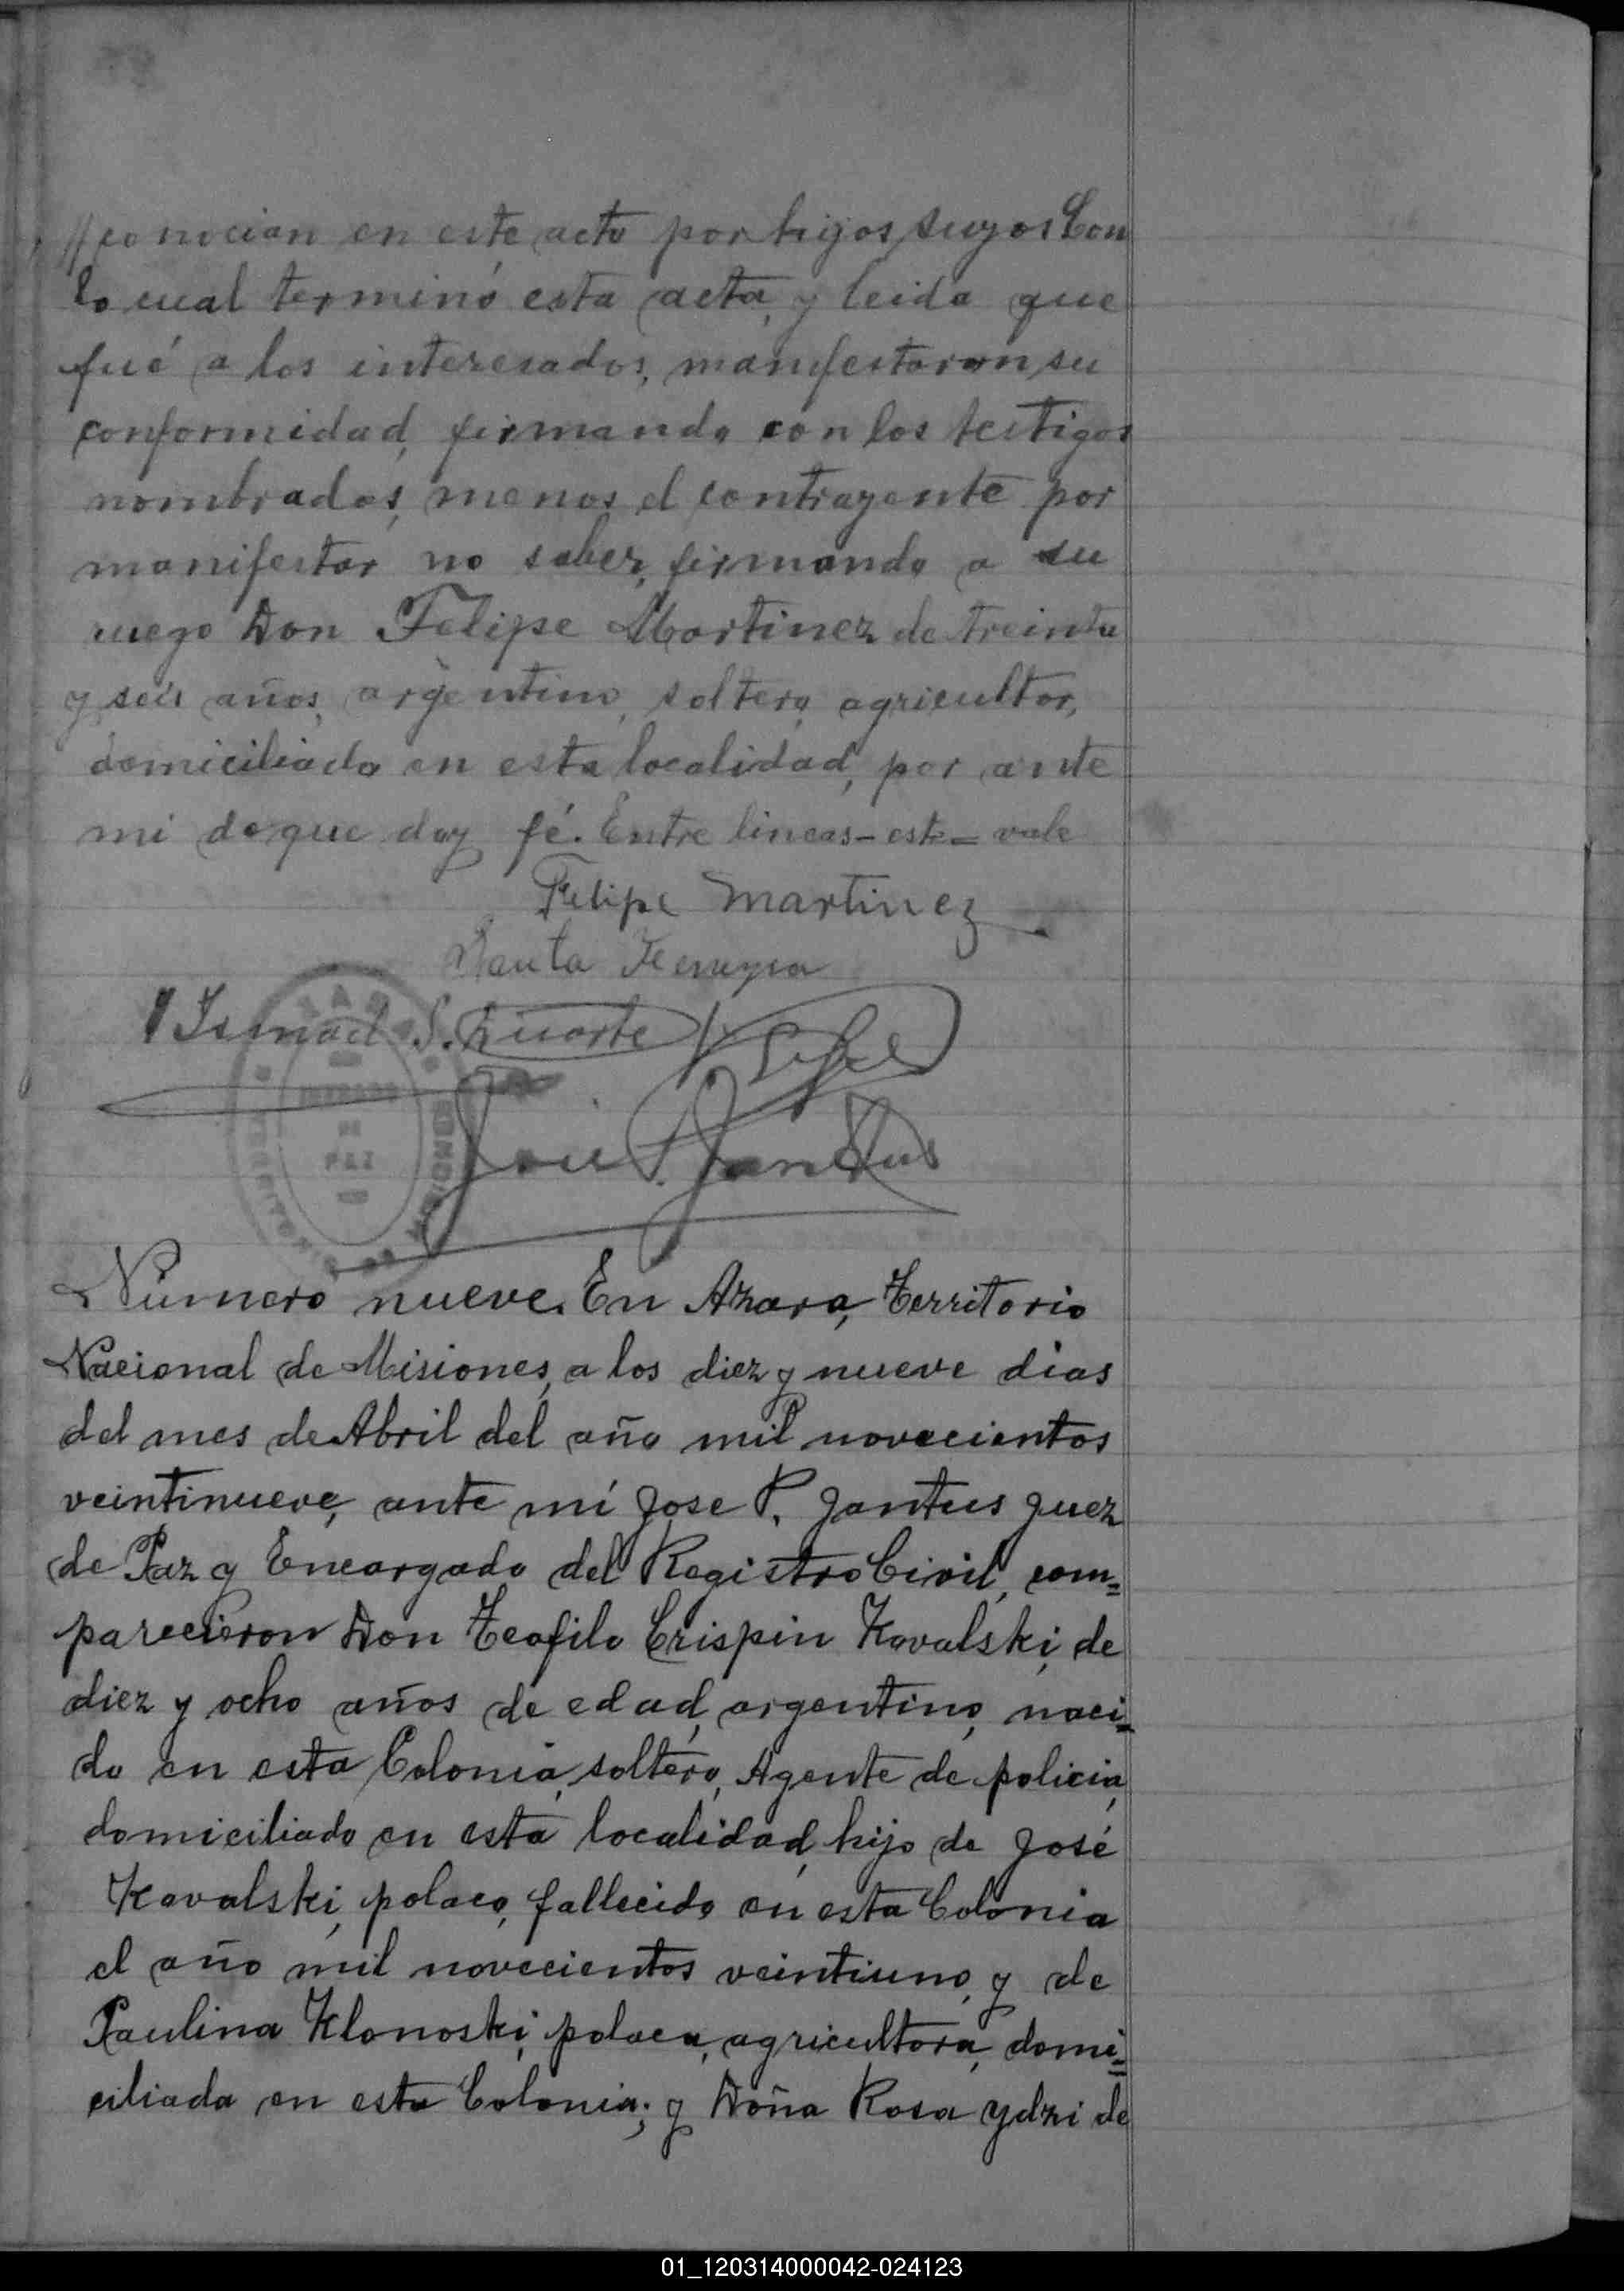 //conocian en este acto por hijos suyos Con
lo cual terminó esta acta, y leida que
fué a los interesados, manifestaron su
conformidad, firmando con los testigos
nombrados, menos el contrayente por
manifestar no saber, firmando a su
ruego Don Felipe Martinez de treinta
y seis años, argentino, soltero, agricultor,
domiciliado en esta localidad, por ante
mi de que doy fé. Entre lineas - este = vale
Felipe Martinez
Santa Ferreyra
Ismael S. Duarte
José P. Jantus
JUZGADO
DE
PAZ
Número nueve. En Azara, Territorio
Nacional de Misiones, a los diez y nueve dias
del mes de Abril del año mil novecientos
veintinueve, ante mí Jose P. Jantus Juez
de Paz y Encargado del Registro Civil, com=
parecieron Don Teofilo Crispin Kovalski, de
diez y ocho años de edad, argentino, naci=
do en esta Colonia, soltero, Agente de policia,
domiciliado en esta localidad, hijo de José
Kovalski, polaco, fallecido en esta Colonia
el año mil novecientos veintiuno, y de
Paulina Klonoski, polaca, agricultora, domi=
ciliada en esta Colonia; y Doña Rosa Ydzi de
01_120314000042-024123